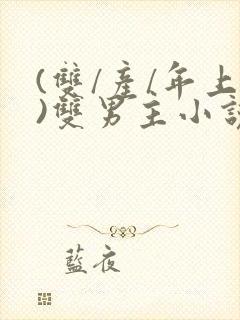 (雙/產/年上
)雙男主小說
藍夜